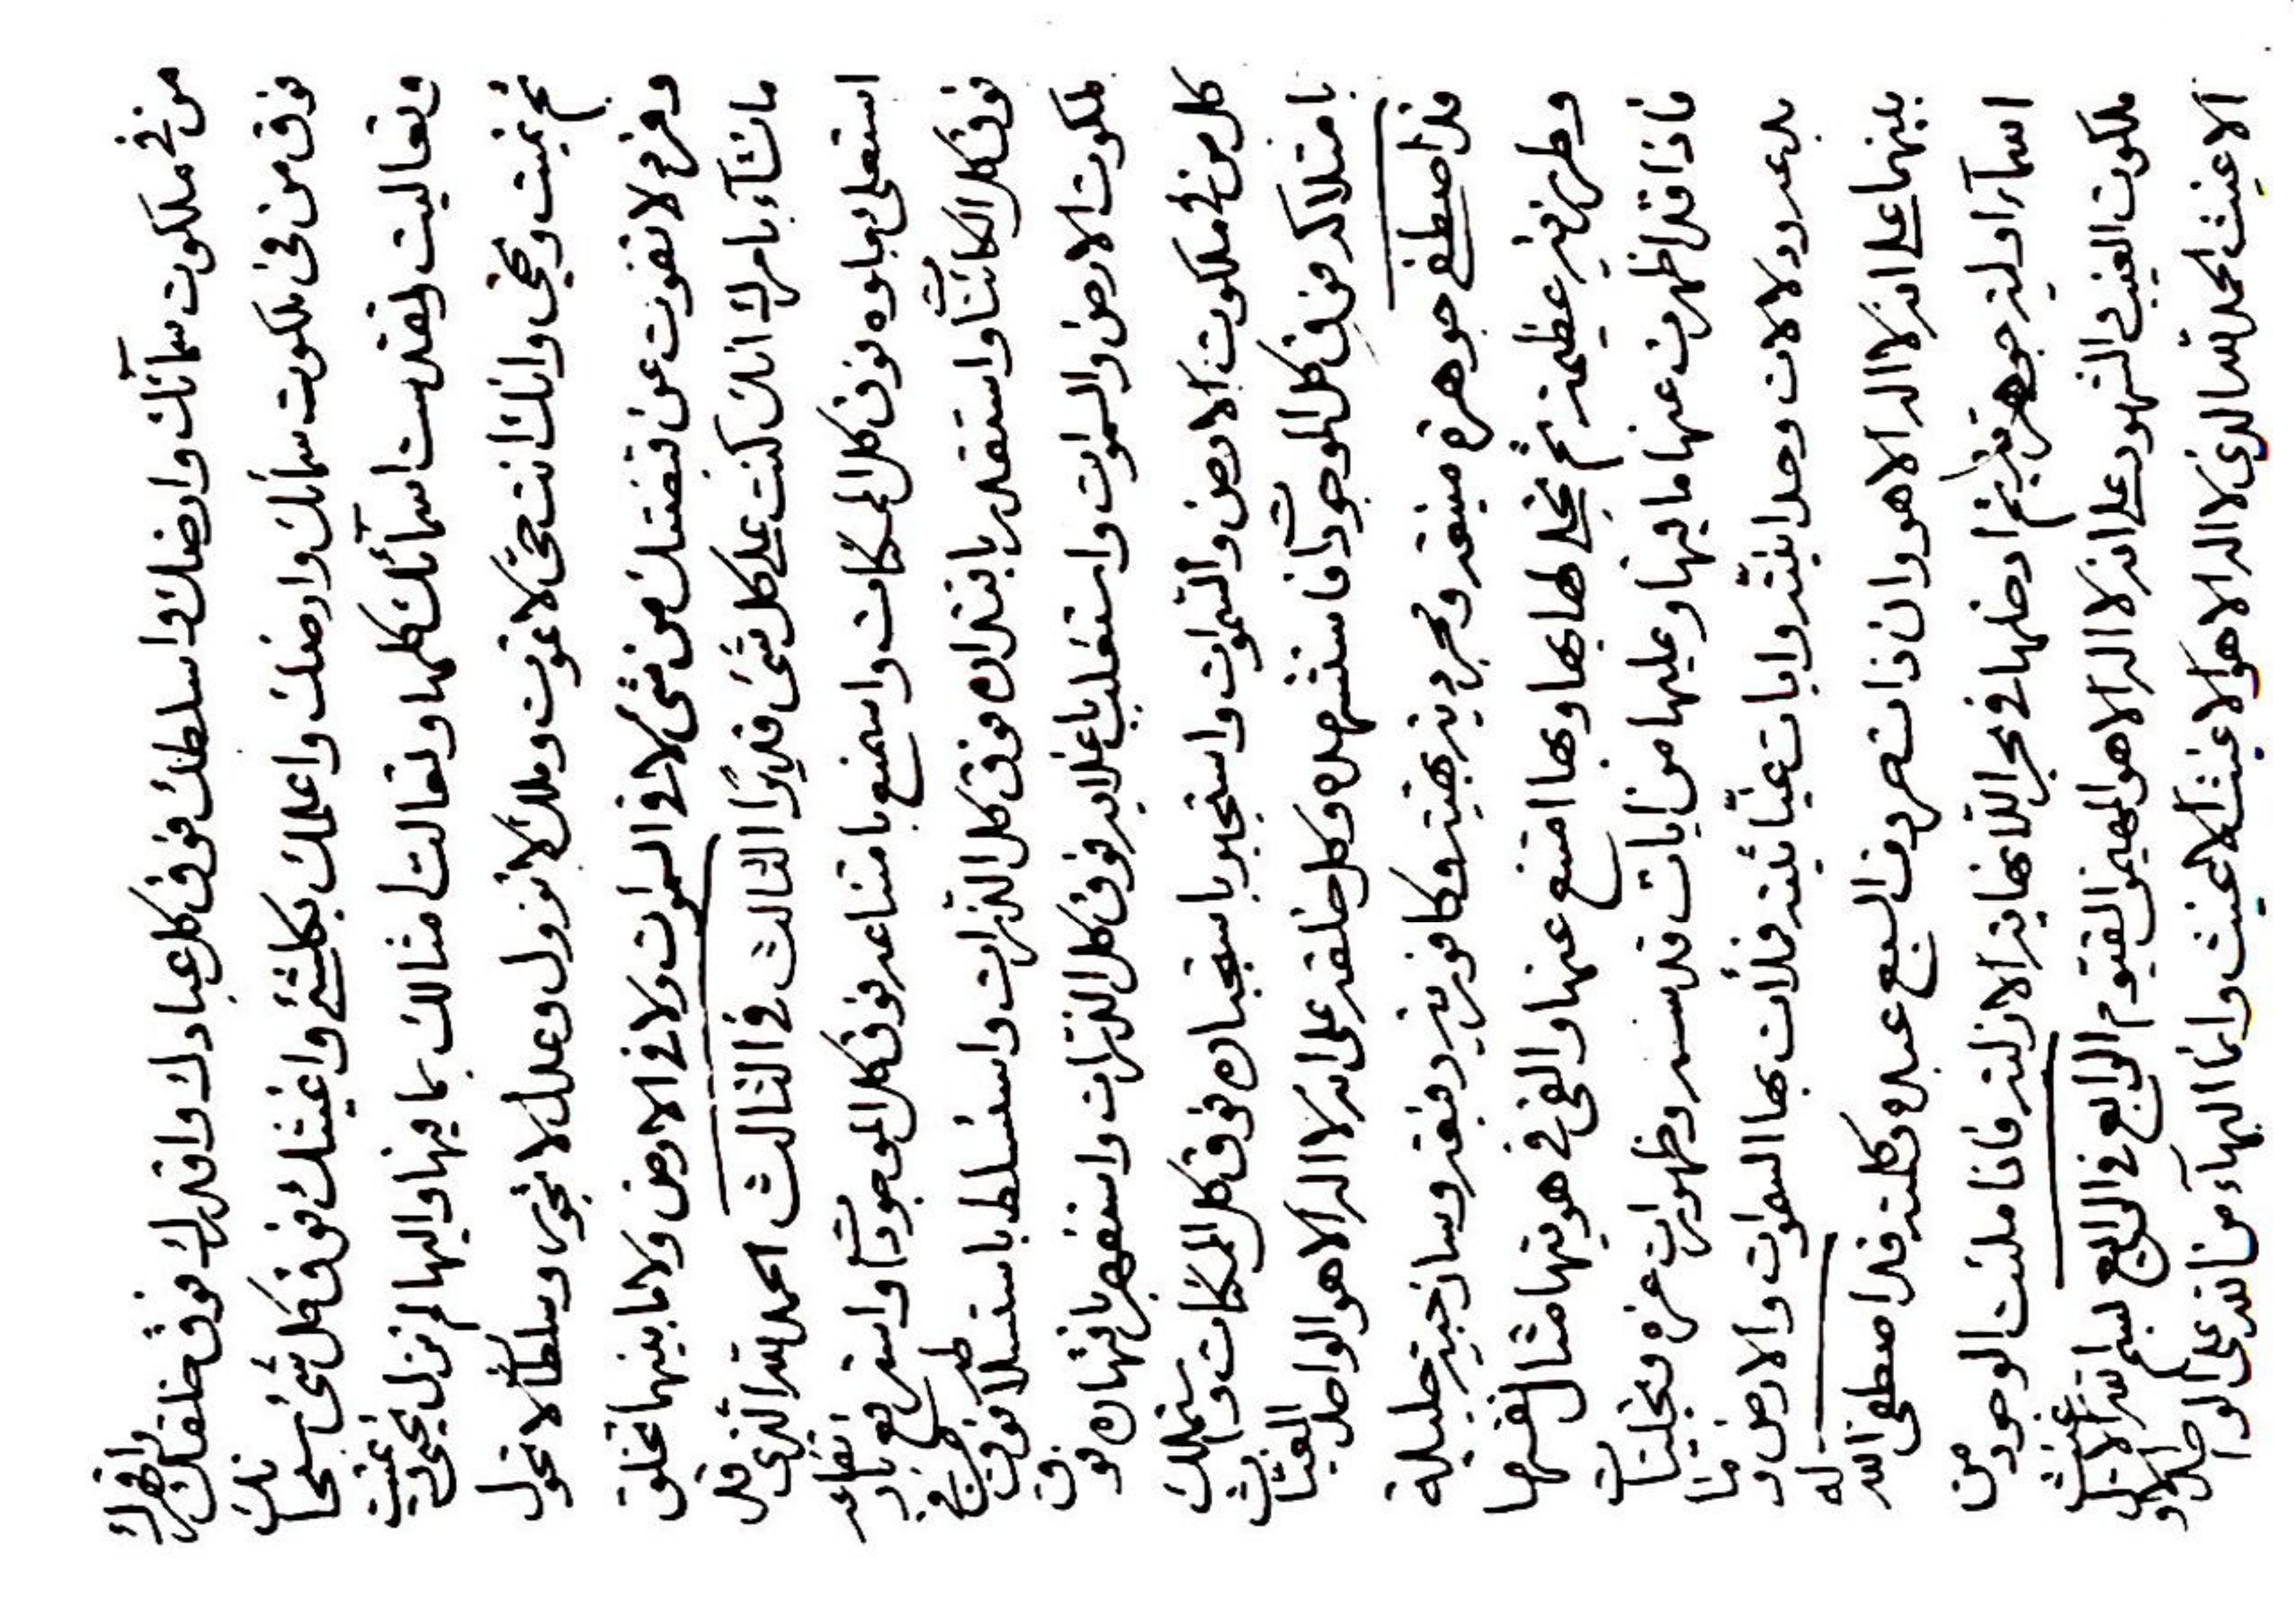 من في ملكوت سمآئك وارضك واسلطك فوق كل عبادك واقدرك فوق خلقك واظهرك
فوق من في ملكوت سمائك وارضك واعلمك بكلشئ واغنيتك فوق كل شئ سبحانك
وتعاليت لتقدست اسمآئك كلها وتعالت امثالك بما فيها واليها لم تزل تحيي وتميت
ثم تميت وتحيي وانك انت حي لا تموت وملك لا تزول وعدل لا تجور وسلطان لا تحول
وفرد لا تفوت عن قبضتك من شئ لا في السموات ولا في الارض ولا ما بينهما تخلق
ما تشآء بامرك انك كنت على كل شئ قديرا الثالث في الثالث الحمد لله الذي قد
استعلى بعلوه فوق كل الممكنات واستمنع بامتناعه فوق كل الموجودات واسترفع بارتفاعه
فوق كل الكائنات واستقدر باقتداره فوق كل الذرات واستسلط باستسلاطه فوق من في
ملكوت الارض والسموات واستغلب باغلابه فوق كل الذرات واستقهر باقتهاره فوق
كل من في ملكوت الارض والسموات واستجبر باستجباره فوق كل الممكنات واستملك
بامتلاكه فوق كل الموجودات فاستشهده وكل خلقه على انه لا اله الا هو الواحد الغياث
قد اصطفى جوهرة منيعة ومجردية بهية وكافورية رفيعة وساذجية جليلة
وطرزية عظيمة ثم تجلى لها بها وبها امتنع عنها والقى في هويتها مثال نفسها
فاذا قد اظهرت عنها ما فيها وعليها من ايات قدسه وظهورات عزه وتجليات
بدعه ودلالات وحدانيته وايات غياثيته فملأت بها السموات والارض وما
بينهما على انه لا اله الا هو وان ذات حروف السبع عبده وكلمته قد اصطفى الله له
اسمآء اولية جوهرية ثم ادخلها في بحر اللانهاية الازلية فاذا ملئت الوجود من
ملكوت الغيب والشهود على انه لا اله الا هو المهيمن القيوم الرابع في الرابع بسم الله الاغيث
الاغيث الحمد لله الذي لا اله الا هو الاغيث الاغيث وانما البهآء من الله على الواحد الاول